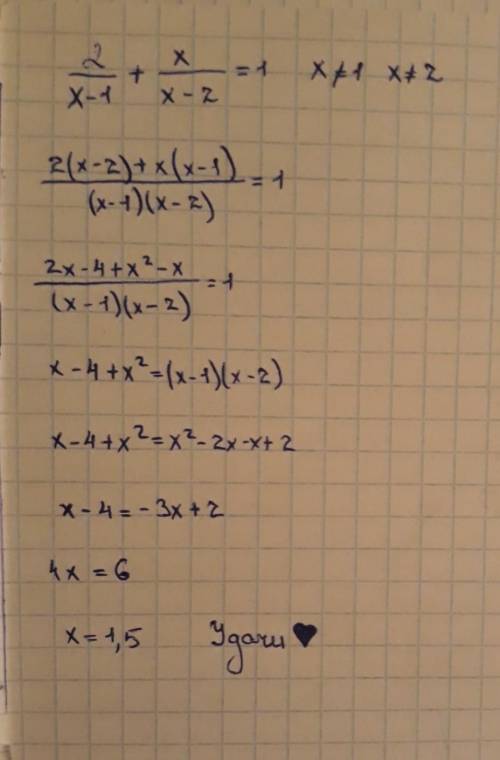 2/(x-1) + x/(x-2) = 1 x≠1 x≠2
(2(x-2)+x(x-1))/((x-1)(x-2)) = 1
(2x-4+x²-x)/((x-1)(x-2)) = 1
x-4+x²=(x-1)(x-2)
x-4+x²=x²-2x-x+2
x-4=-3x+2
4x=6
x=1,5 Удачи ♥